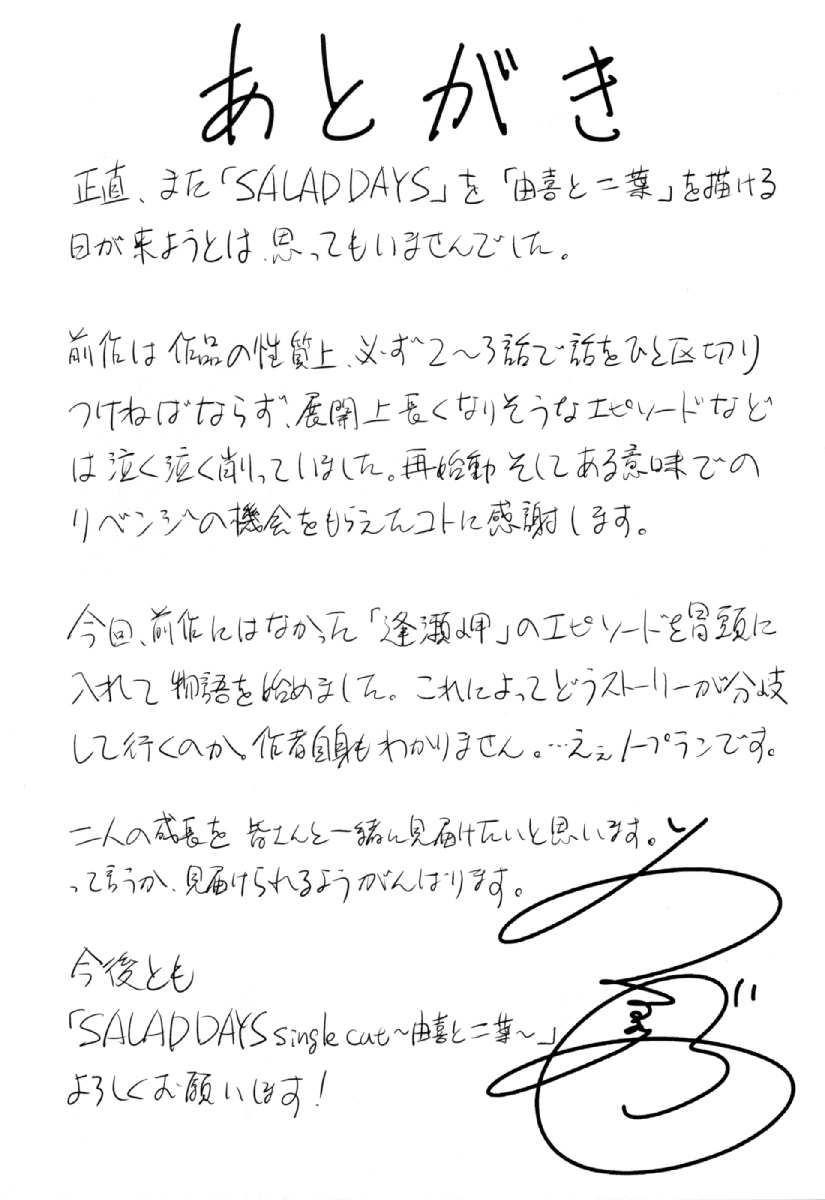 あとがき
正直、また「SALAD DAYS」を「由喜と二葉」を描ける
日が来ようとは、思ってもいませんでした。
前作は作品の性質上、必ず2〜3話で話をひと区切り
つけねばならず、展開上長くなりそうなエピソードなど
は泣く泣く削っていました。再始動そしてある意味での
リベンジの機会をもらえたコトに感謝します。
今回、前作にはなかった「逢瀬岬」のエピソードを冒頭に
入れて物語を始めました。これによってどうストーリーが分岐
して行くのか。作者自身もわかりません。…えぇノープランです。
二人の成長を皆さんと一緒に見届けたいと思います。
って言うか、見届けられるようがんばります。
今後とも
「SALAD DAYS single cut〜由喜と二葉〜」
よろしくお願いします!